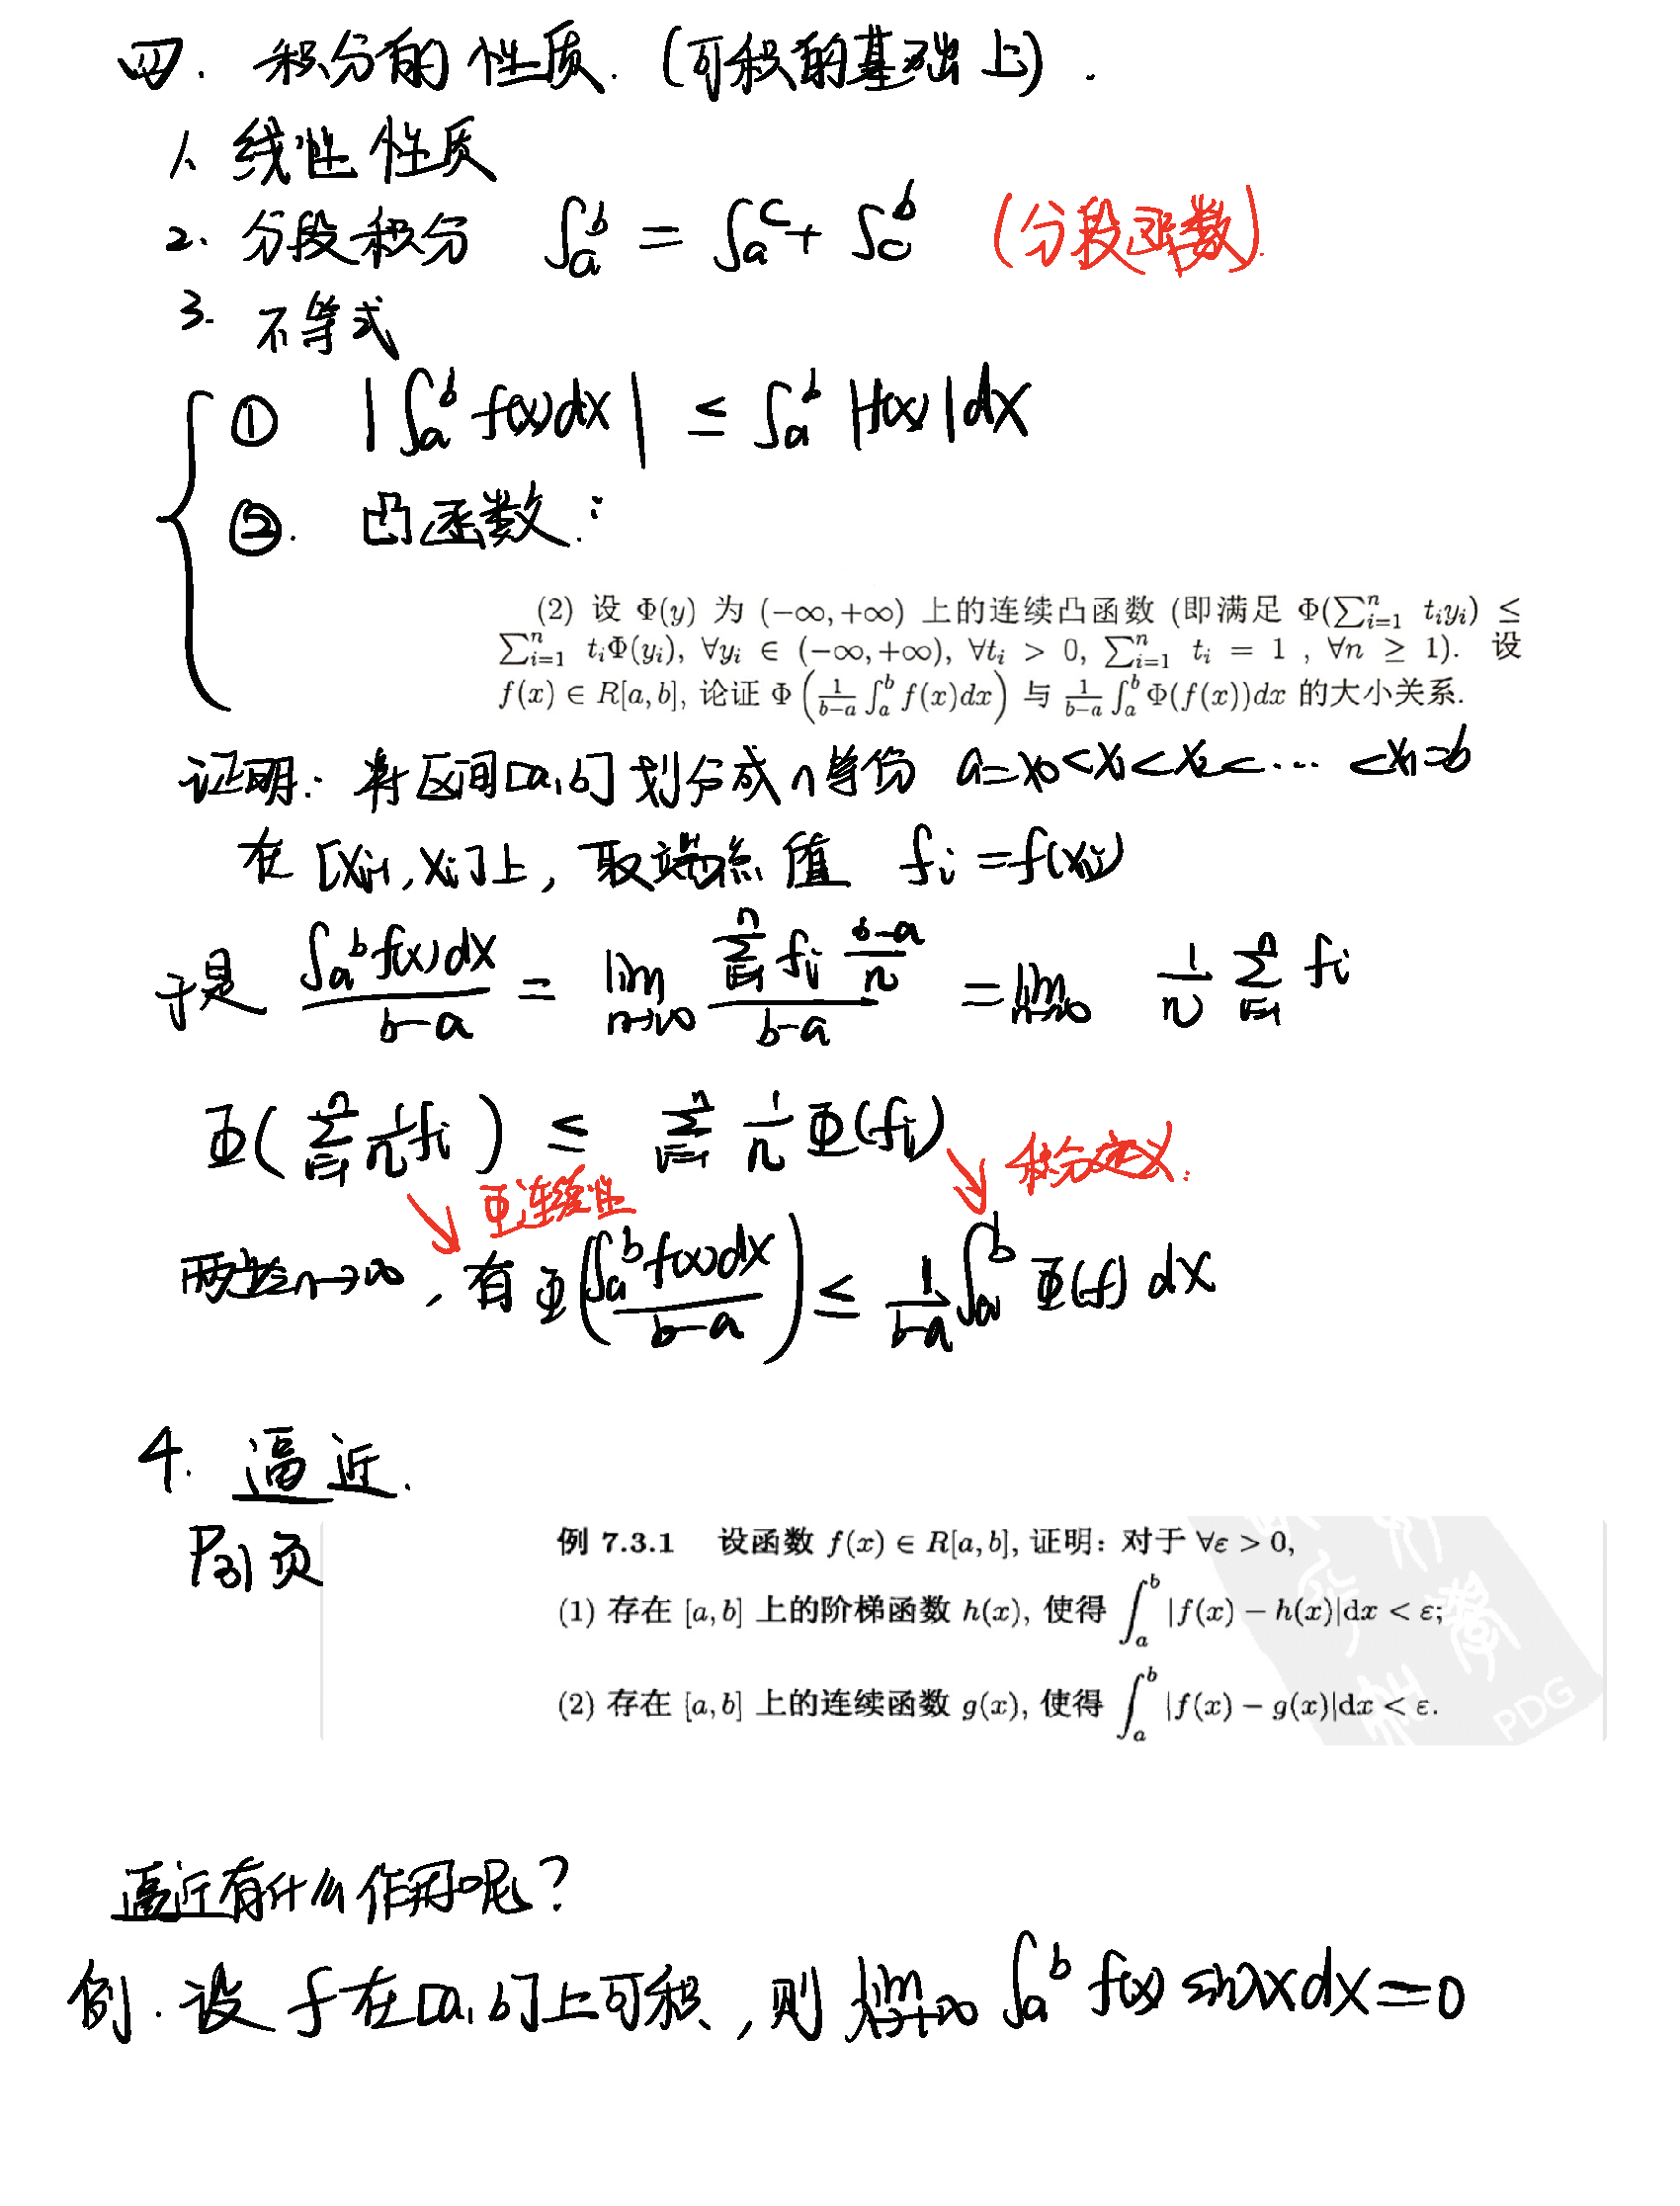 四. 积分的性质. (可积的基础上).
1. 线性性质
2. 分段积分 ∫_a^b = ∫_a^c + ∫_c^b (分段函数).
3. 不等式
① |∫_a^b f(x)dx| ≤ ∫_a^b |f(x)|dx
②. 凸函数:
(2) 设 Φ(y) 为 (−∞,+∞) 上的连续凸函数 (即满足 Φ(∑_{i=1}^n t_i y_i) ≤
∑_{i=1}^n t_iΦ(y_i), ∀y_i ∈ (−∞,+∞), ∀t_i > 0, ∑_{i=1}^n t_i = 1 , ∀n ≥ 1). 设
f(x) ∈ R[a,b], 论证 Φ(1/(b−a) ∫_a^b f(x)dx) 与 1/(b−a) ∫_a^b Φ(f(x))dx 的大小关系.
证明: 将区间[a,b]划分成n等份 a=x_0<x_1<x_2<⋯<x_n=b
在[x_{i-1},x_i]上, 取端点值 f_i=f(x_i)
于是 (∫_a^b f(x)dx)/(b−a) = lim_{n→∞} (∑_{i=1}^n f_i (b−a)/n)/(b−a) = lim_{n→∞} 1/n ∑_{i=1}^n f_i
Φ(∑_{i=1}^n 1/n f_i) ≤ ∑_{i=1}^n 1/n Φ(f_i)
↘ Φ连续性 ↘ 积分定义.
两边n→∞, 有 Φ((∫_a^b f(x)dx)/(b−a)) ≤ 1/(b−a) ∫_a^b Φ(f) dx
4. 逼近.
P31页
例 7.3.1 设函数 f(x) ∈ R[a,b], 证明: 对于 ∀ε > 0,
(1) 存在 [a,b] 上的阶梯函数 h(x), 使得 ∫_a^b |f(x) − h(x)|dx < ε;
(2) 存在 [a,b] 上的连续函数 g(x), 使得 ∫_a^b |f(x) − g(x)|dx < ε.
PDG
逼近有什么作用呢?
例. 设 f 在[a,b]上可积, 则 lim_{λ→+∞} ∫_a^b f(x) sinλx dx=0